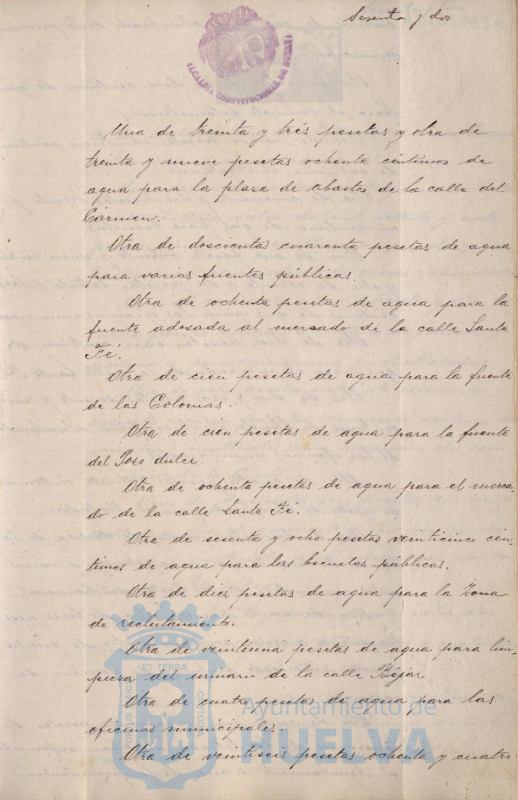 Sesenta y dos
ALCALDIA CONSTITUCIONAL DE HUELVA
Una de treinta y trés pesetas y otra de
treinta y nueve pesetas ochenta céntimos de
agua para la plaza de abastos de la calle del
Cármen.
Otra de doscientas cuarenta pesetas de agua
para varias fuentes públicas.
Otra de ochenta pesetas de agua para la
fuente adosada al mercado de la calle Santa
Fé.
Otra de cien pesetas de agua para la fuente
de las Colonias.
Otra de cien pesetas de agua para la fuente
del Poso dulce.
Otra de ochenta pesetas de agua para el merca-
do de la calle Santa Fé.
Otra de sesenta y ocho pesetas veinticinco cén-
timos de agua para las Escuelas públicas.
Otra de dies pesetas de agua para la Zona
de reclutamiento.
Otra de veintiuna pesetas de agua para lim-
pieza del urinario de la calle Béjar
Otra de cuatro pesetas de agua para las
oficinas municipales.
Otra de veintiseis pesetas ochenta y cuatro
ET TERRÆ
PORTUS MARIS
CUSTODIA
Ayuntamiento de
HUELVA